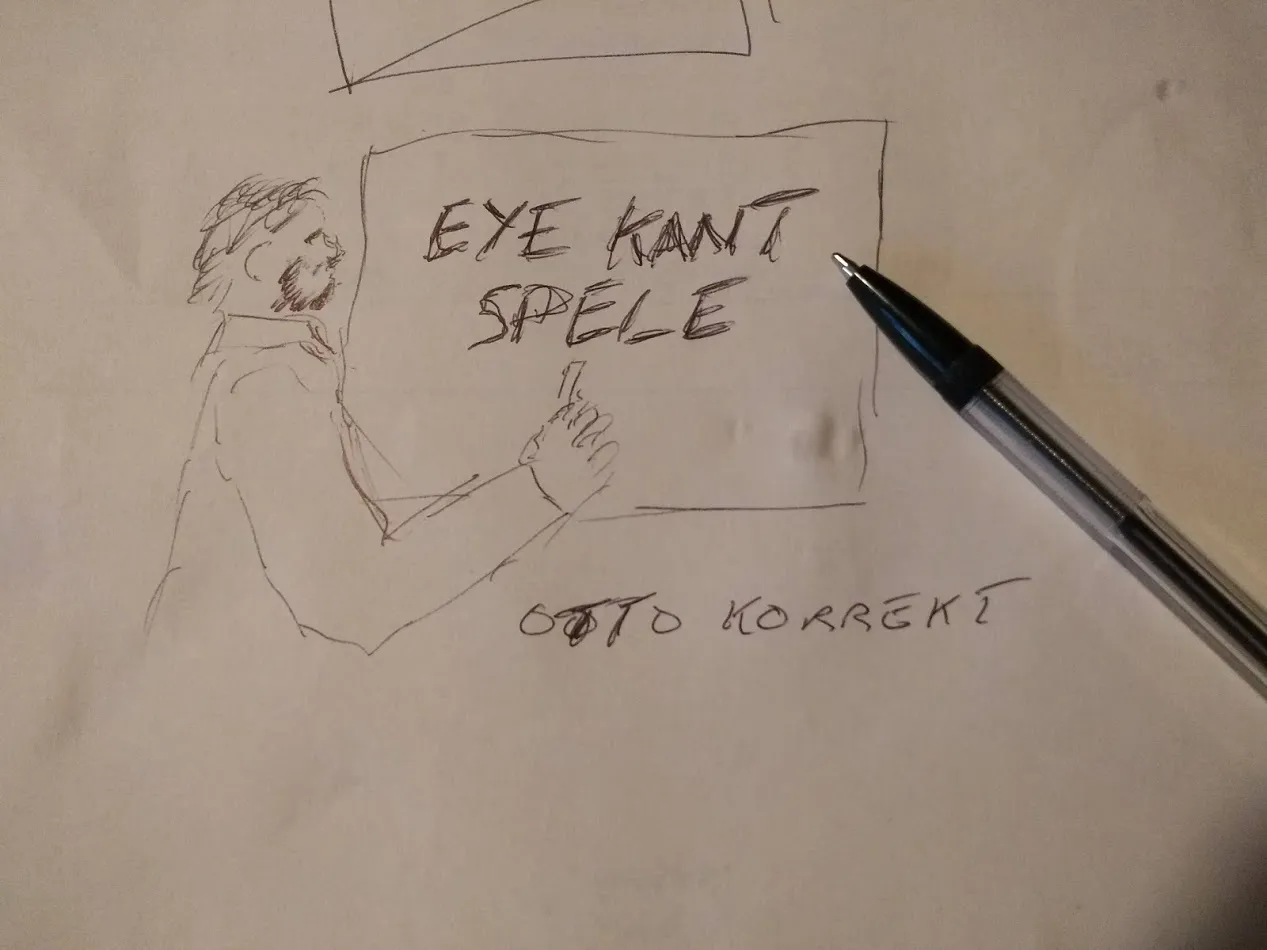 EYE KANT
SPELE
OTTO KORREKT